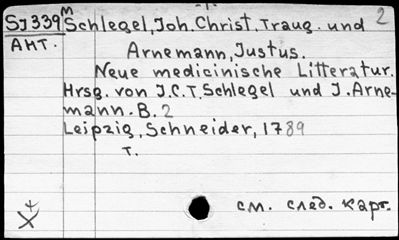 -1-
SJ339м Schlegel, Joh. Christ. Traug. und 2
АНТ. Arnemann, Justus.
Neue medicinische Litteratur.
Hrsg. von J.C.T. Schlegel und J. Arne-
mann. B. 2
Leipzig, Schneider, 1789
т.
см. след. карт.